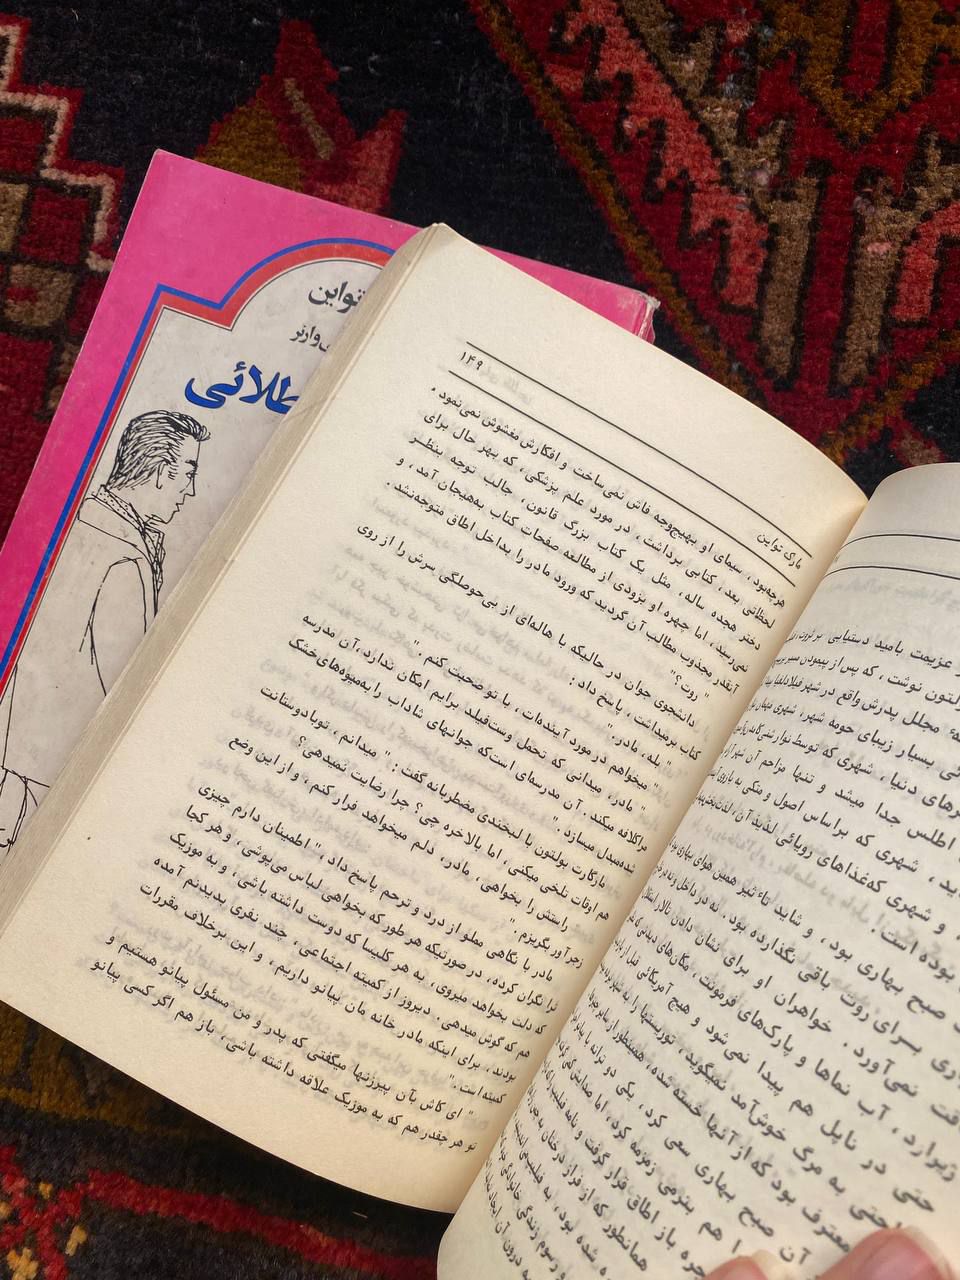 تواین
وارنر
طلائی
مارک تواین
۱۴۹
هرچه‌بود، سیمای او بهیچ‌وجه فاش نمی‌ساخت و افکارش مغشوش نمی‌نمود،
لحظاتی بعد، کتابی برداشت، در مورد علم پزشکی، که بهر حال برای
دختر هجده ساله، مثل یک کتاب بزرگ قانون، جالب توجه بنظر
نمی‌رسید، اما چهره او بزودی از مطالعه صفحات کتاب به‌هیجان آمد، و
آنقدر مجذوب مطالب آن گردید که ورود مادر را بداخل اطاق متوجه‌نشد.
" روت؟"
دانشجوی جوان در حالیکه با هاله‌ای از بی‌حوصلگی سرش را از روی
کتاب برمیداشت، پاسخ داد:
" بله، مادر."
" میخواهم در مورد آینده‌ات، با تو صحبت کنم."
" مادر، میدانی که تحمل وست‌فیلد برایم امکان ندارد، آن مدرسه
مرا کلافه میکند. آن مدرسه‌ای است‌که جوانهای شاداب را به‌میوه‌های خشک
شده‌مبدل میسازد."
مارگارت بولتون با لبخندی مضطربانه گفت: " میدانم، تو با دوستانت
هم اوقات تلخی میکنی، اما بالاخره چی؟ چرا رضایت نمیدهی؟"
راستش را بخواهی، مادر، دلم میخواهد فرار کنم، و از این وضع
زجرآور بگریزم."
مادر با نگاهی مملو از درد و ترحم پاسخ داد، " اطمینان دارم چیزی
ترا نگران کرده، در صورتیکه هر طور که بخواهی لباس می‌پوشی، و هر کجا
که دلت بخواهد میروی، به هر کلیسا که دوست داشته باشی، و به موزیک
هم که گوش میدهی. دیروز از کمیته اجتماعی، چند نفری بدیدنم آمده
بودند، برای اینکه مادر خانه مان پیانو داریم، و این برخلاف مقررات
کمیته است."
" ای کاش بآن پیرزنها میگفتی که پدر و من مسئول پیانو هستیم و
تو هر چقدر هم که به موزیک علاقه داشته باشی، باز هم اگر کسی پیانو
عزیمت بامید دستیابی بر ثروت،
بولتون نوشت، که پس از پیمودن
مجلل پدرش واقع در شهر فیلادلفیا
بسیار زیبای حومه شهر، شهری
دنیا، شهری که توسط نوار
اطلس جدا میشد و تنها مزاحم آن شهر
شهری که براساس اصول و متکی به
و شهری که‌غذاهای رویائی لذیذ آن،
بوده است!
صبح بهاری بود، و شاید تأثیر همین هوای بهاری بود
برای روت باقی نگذارده بود. نه در داخل
نمی‌آورد. خواهران او برای نشان دادن تالار
آب نماها و پارک‌های فرمونت، مکان‌های دیدنی
در ناپل هم پیدا نمی‌شود و هیچ آمریکائی قبل از
به مرگ خوش‌آمد نمیگوید، توریستها را به شهر
معترف بود که از آنها خسته شده،
آن صبح بهاری سعی کرد، یکی دو ترانه با
هم بنرمی زمزمه کرد، اما صدایش
باز اطاق قرار گرفت و نامه فیلیپ را
همانطور که از فراز درختان به
شده بود، به فیلیپ
و رسوم زندگی خانوادگی
درون آن